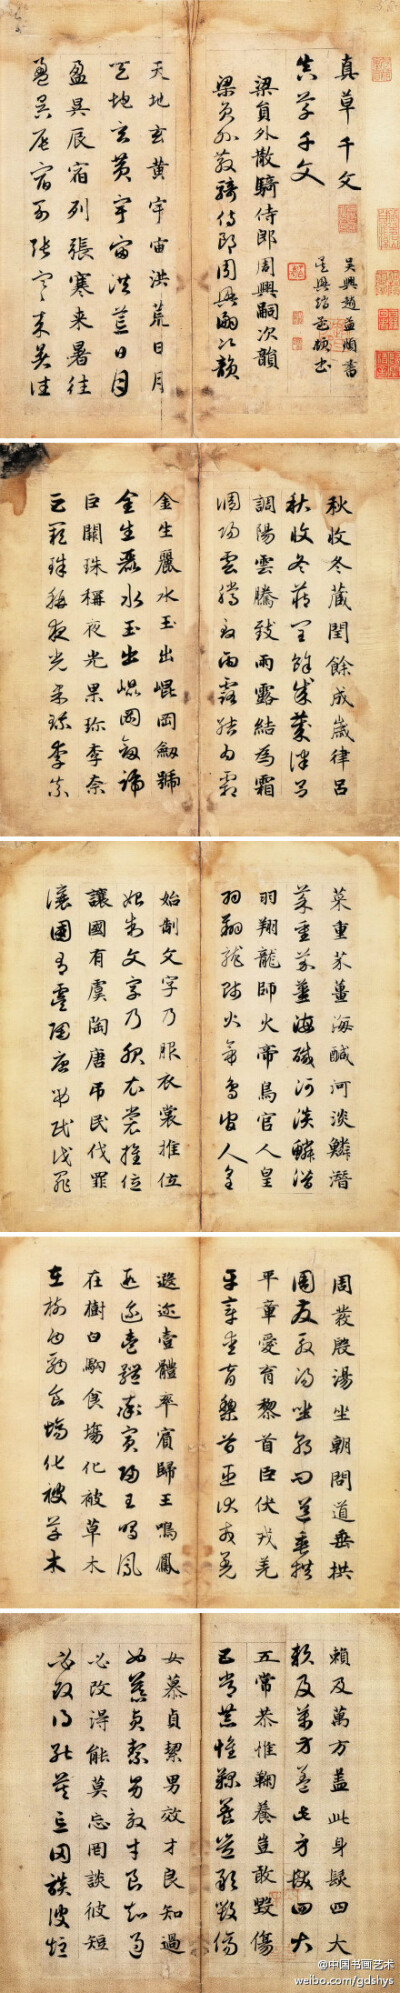 真草千文
吴興趙孟頫書
真草千文
吴興趙孟頫書
梁員外散騎侍郎周興嗣次韻
梁員外散騎侍郎周興嗣次韻
天地玄黄宇宙洪荒日月
天地玄黄宇宙洪荒日月
盈昃辰宿列張寒来暑往
盈昃辰宿列張寒来暑往
秋收冬藏閏餘成歲律吕
秋收冬藏閏餘成歲律吕
調陽雲騰致雨露結為霜
調陽雲騰致雨露結為霜
金生麗水玉出崐岡劒號
金生麗水玉出崐岡劒號
巨闕珠稱夜光果珍李柰
巨闕珠稱夜光果珍李柰
菜重芥薑海鹹河淡鱗潛
菜重芥薑海鹹河淡鱗潛
羽翔龍師火帝鳥官人皇
羽翔龍師火帝鳥官人皇
始制文字乃服衣裳推位
始制文字乃服衣裳推位
讓國有虞陶唐吊民伐罪
讓國有虞陶唐吊民伐罪
周發殷湯坐朝問道垂拱
周發殷湯坐朝問道垂拱
平章愛育黎首臣伏戎羌
平章愛育黎首臣伏戎羌
遐迩壹體率賓歸王鳴鳳
遐迩壹體率賓歸王鳴鳳
在樹白駒食場化被草木
在樹白駒食場化被草木
賴及萬方盖此身髮四大
賴及萬方盖此身髮四大
五常恭惟鞠養豈敢毁傷
五常恭惟鞠養豈敢毁傷
女慕貞絜男效才良知過
女慕貞絜男效才良知過
必改得能莫忘罔談彼短
必改得能莫忘罔談彼短
@中国书画艺术
weibo.com/gdshys